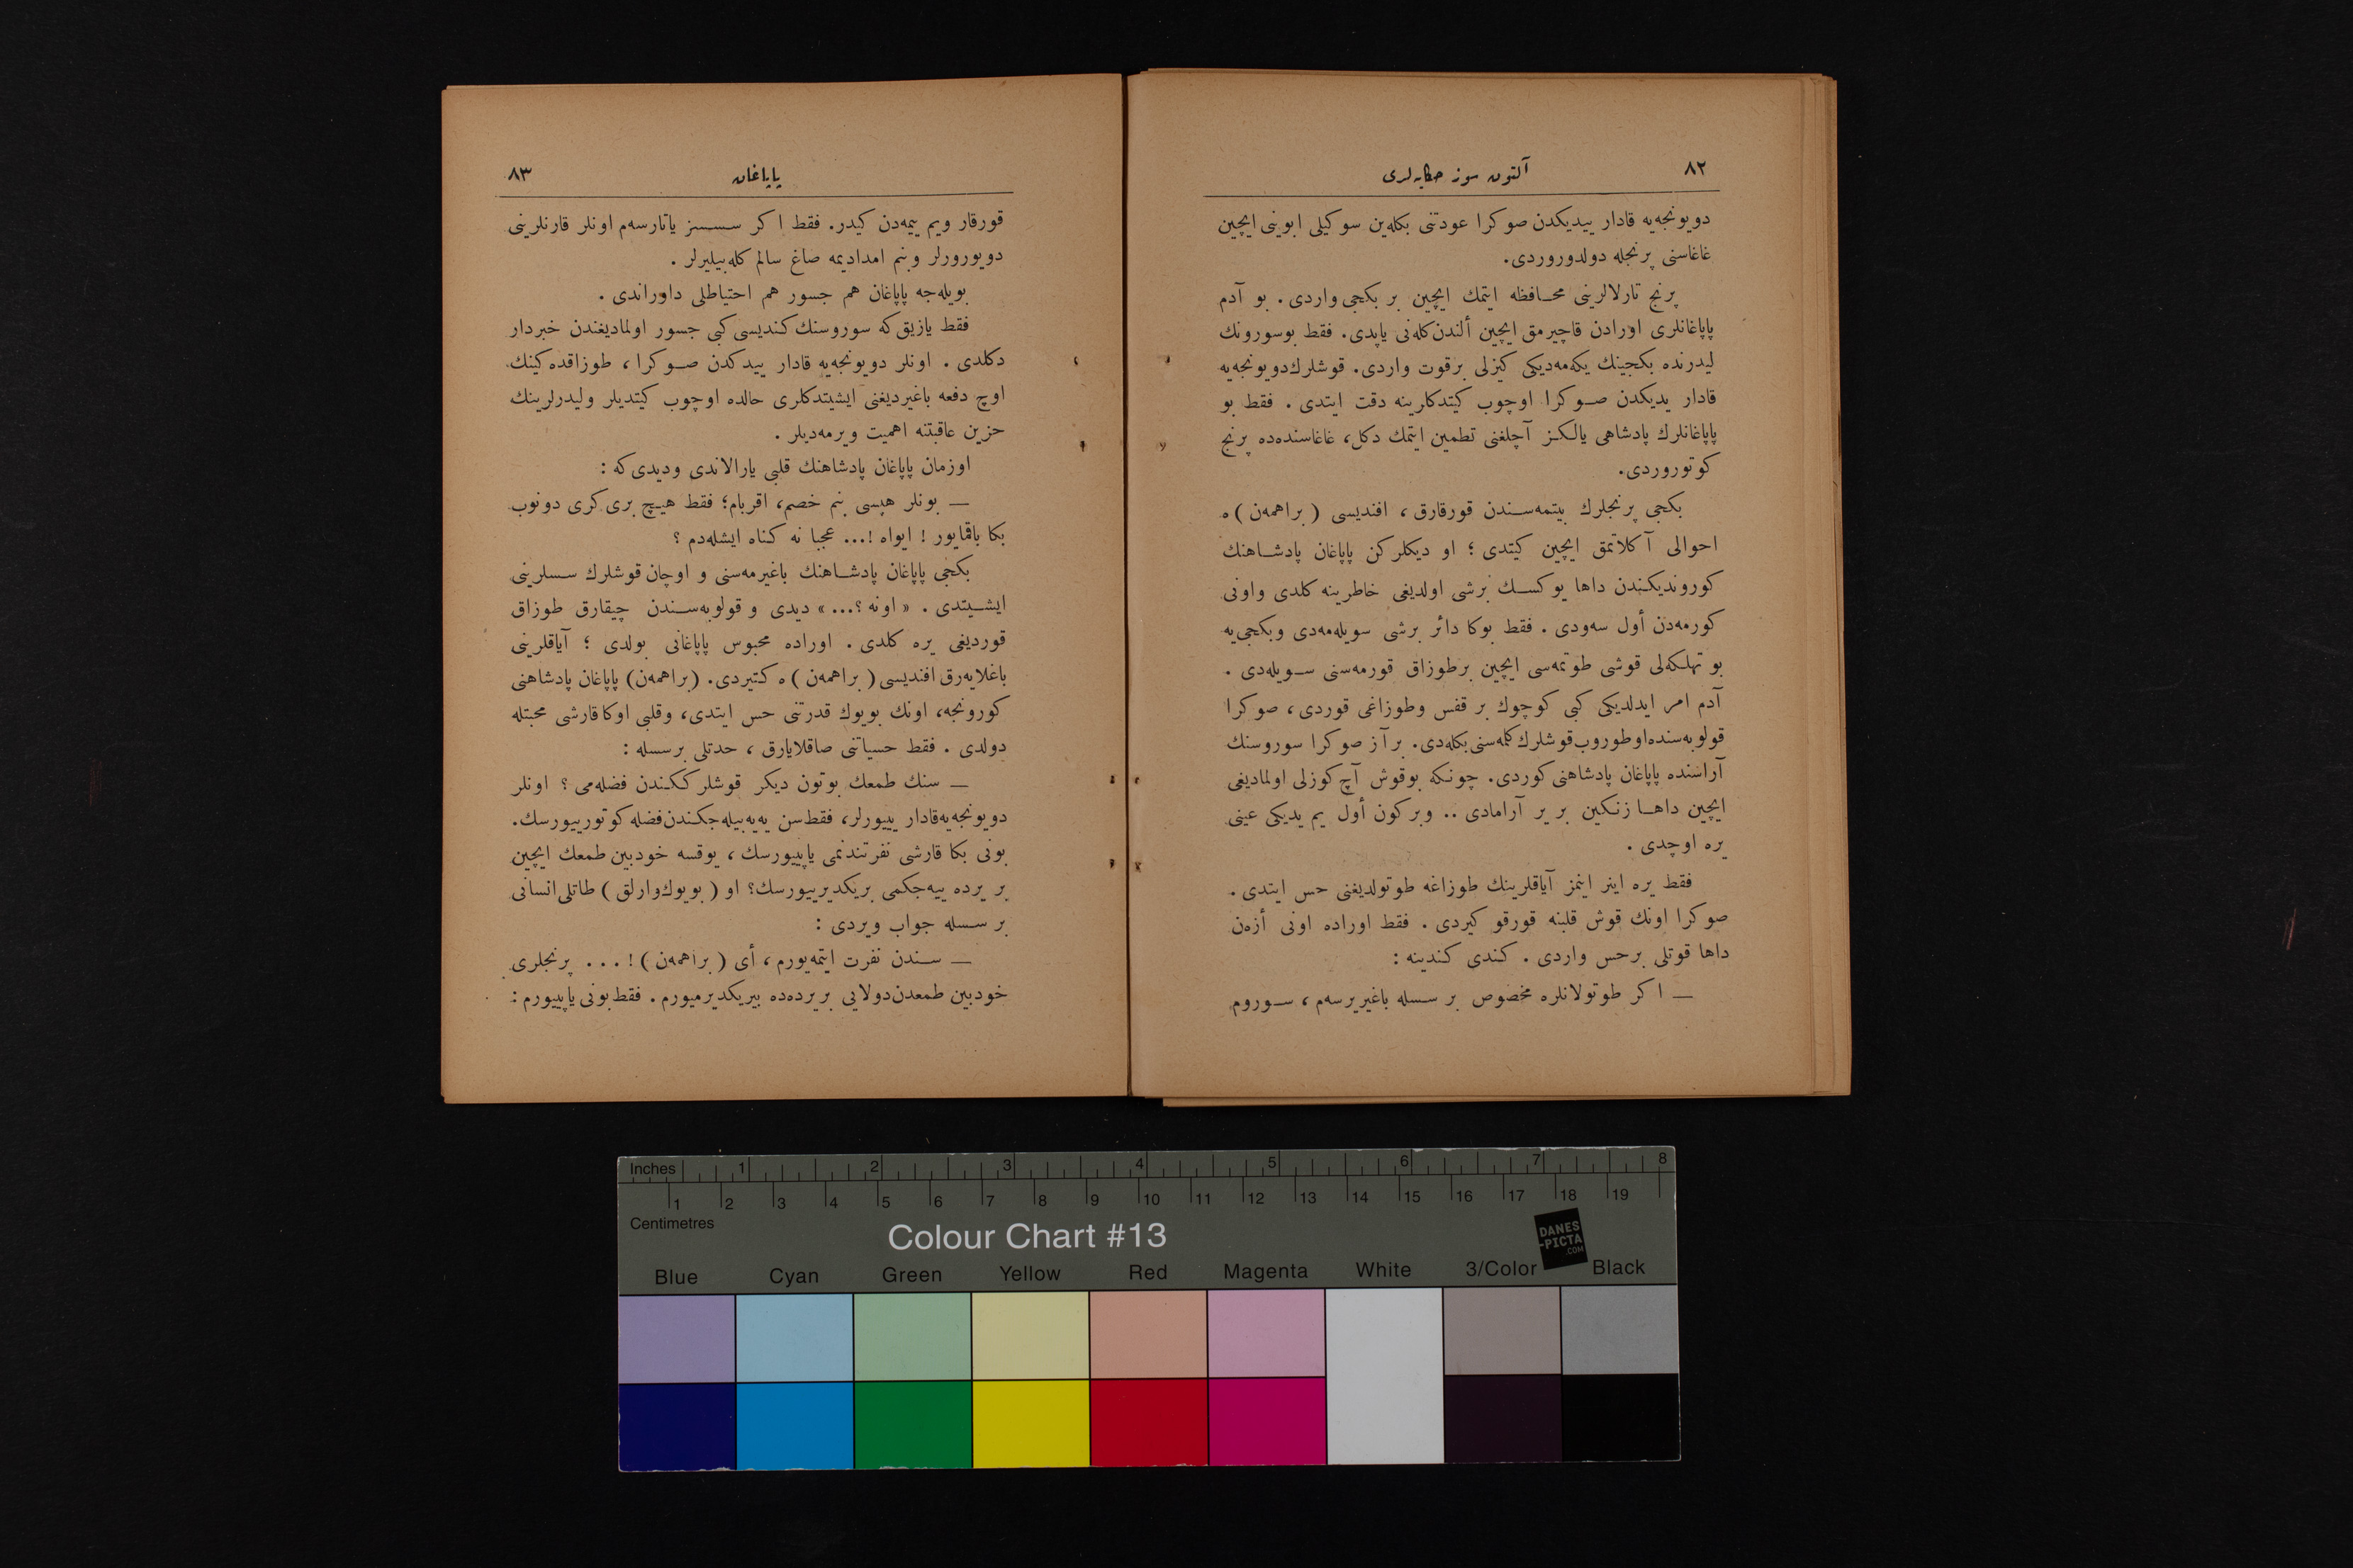 ٨٢
آلتون سوز حكايه‌لری
دويونجه‌يه قادار ييديكدن صوكرا عودتنی بكله‌ين سوكيلی ابوينی ايچين
غاغاسنی پرنجله دولدوروردی.
پرنج تارلالرينی محافظه ايتمك ايچين بر بكجی واردی. بو آدم
پاپاغانلری اورادن قاچيرمق ايچين ألندن كله‌نی ياپدی. فقط بوسورونك
ليدرنده بكجينك يكه‌مه‌ديكی كيزلی برقوت واردی. قوشلرك دويونجه‌يه
قادار يديكدن صوكرا اوچوب كيتدكلرينه دقت ايتدی. فقط بو
پاپاغانلرك پادشاهی يالكز آچلغنی تطمين ايتمك دكل، غاغاسنده‌ده پرنج
كوتوروردی.
بكجی پرنجلرك بيتمه‌سندن قورقارق، افنديسی (براهمه‌ن) ه
احوالی آكلاتمق ايچين كيتدی؛ او ديكلركن پاپاغان پادشاهنك
كوروندیكندن داها يوكسك برشی اولديغی خاطرينه كلدی واونی
كورمه‌دن أول سه‌ودی. فقط بوكا دائر برشی سويله‌مه‌دی وبكجی‌يه
بو تهلكه‌لی قوشی طوتمه‌سی ايچين برطوزاق قورمه‌سنی سويله‌دی.
آدم امر ايدلديكی كبی كوچوك بر قفس وطوزاغی قوردی، صوكرا
قولوبه‌سنده‌اوطوروب قوشلرك كلمه‌سنی بكله‌دی. بر آز صوكرا سوروسنك
آراسنده پاپاغان پادشاهنی كوردی. چونكه بوقوش آچ كوزلی اولماديغی
ايچين داها زنكين بر ير آرامادی .. وبر كون أول يم يديكی عينی
يره اوچدی.
فقط يره اينر اينمز آياقلرينك طوزاغه طوتولديغنی حس ايتدی.
صوكرا اونك قوش قلبنه قورقو كيردی. فقط اوراده اونی أزه‌ن
داها قوتلی برحس واردی. كندی كندينه:
— اكر طوتولانلره مخصوص بر سسله باغيريرسه‌م، سوروم
پاپاغان
٨٣
قورقار ويم ييمه‌دن كيدر. فقط اكر سسسز ياتارسه‌م اونلر قارنلرينی
دويورورلر وبنم امداديمه صاغ سالم كله‌بيليرلر.
بويله‌جه پاپاغان هم جسور هم احتياطلی داوراندی.
فقط يازيق كه سوروسنك كنديسی كبی جسور اولماديغندن خبردار
دكلدی. اونلر دويونجه‌يه قادار ييدكدن صوكرا، طوزاقده كينك
اوچ دفعه باغيرديغنی ايشيتدكلری حالده اوچوب كيتديلر وليدرلرينك
حزين عاقبتنه اهميت ويرمه‌ديلر.
اوزمان پاپاغان پادشاهنك قلبی يارالاندی وديدی كه:
— بونلر هپسی بنم خصم، اقربام؛ فقط هيچ بری كری دونوب
بكا باقمايور! ايواه!... عجبا نه كناه ايشله‌دم؟
بكجی پاپاغان پادشاهنك باغيرمه‌سنی و اوچان قوشلرك سسلرينی
ايشيتدی. «اونه؟...» ديدی و قولوبه‌سندن چيقارق طوزاق
قورديغی يره كلدی. اوراده محبوس پاپاغانی بولدی؛ آياقلرينی
باغلايه‌رق افنديسی (براهمه‌ن) ه كتيردی. (براهمه‌ن) پاپاغان پادشاهنی
كورونجه، اونك بويوك قدرتنی حس ايتدی، وقلبی اوكا قارشی محبتله
دولدی. فقط حسياتنی صاقلايارق، حدتلی برسسله:
— سنك طمعك بوتون ديكر قوشلر ككندن فضله‌می؟ اونلر
دويونجه‌يه قادار ييبورلر، فقط سن يه‌يه‌بيله‌جككدن فضله كوتورييورسك.
بونی بكا قارشی نفرتندنمی ياپييورسك، يوقسه خودبين طمعك ايچين
بر يرده ييه‌جكمی بريكديرييورسك؟ او (بويوك وارلق) طاتلی انسانی
بر سسله جواب ويردی:
— سندن نفرت ايتمه‌يورم، أی (براهمه‌ن)!... پرنجلری
خودبين طمعدن دولايی بر يرده‌ده بيريكديرميورم. فقط بونی ياپييورم:
Inches 1 2 3 4 5 6 7 8
1 2 3 4 5 6 7 8 9 10 11 12 13 14 15 16 17 18 19
Centimetres
Colour Chart #13
DANES
-PICTA
.COM
Blue Cyan Green Yellow Red Magenta White 3/Color Black